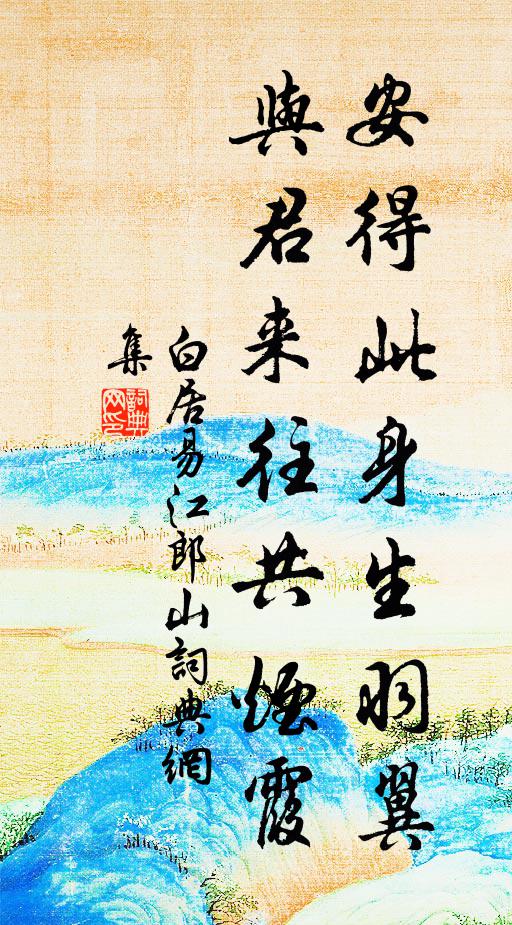 安得此身生羽翼
與君来往共煙霞
白居易江郎山詞典網
集
詞典
网印